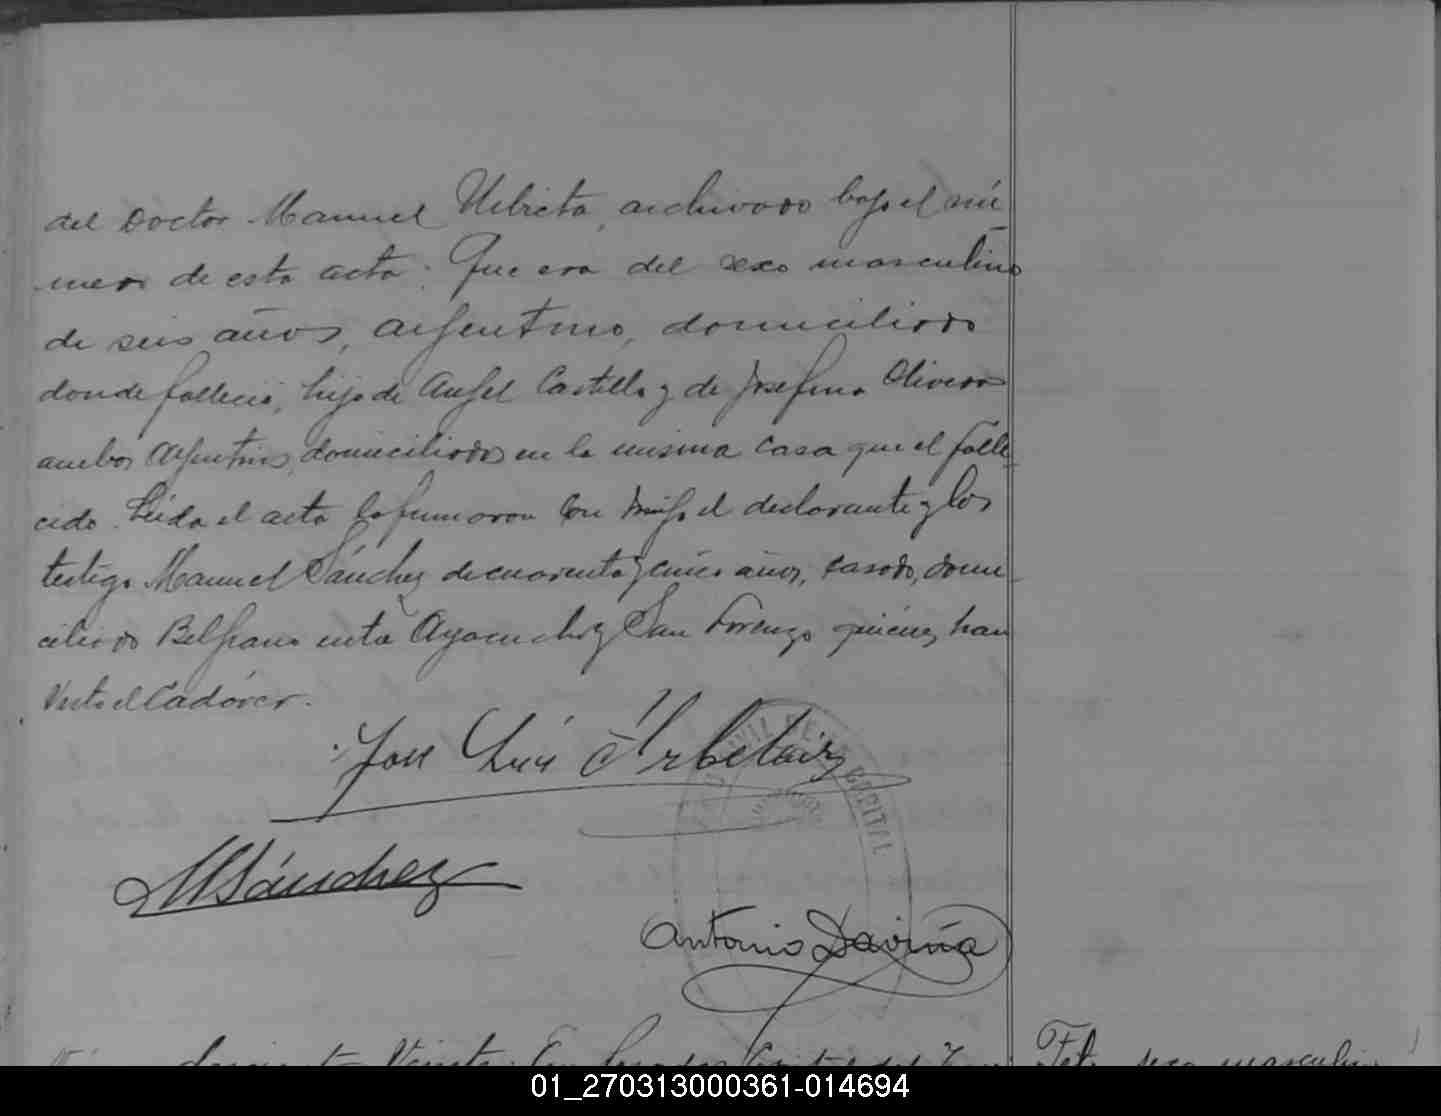 del Doctor Manuel Ubieta, archivado bajo el nú
mero de esta acta: Que era del sexo masculino
de seis años, argentino, domiciliado
donde falleció, hijo de Angel Castillo y de Josefina Olivera
ambos Argentinos, domiciliados en la misma casa que el falle
cido. Leida el acta la firmaron con migo el declarante y los
testigo Manuel Sánchez de cuarenta y cinco años, casado, domi
ciliado Belgrano entre Ayacucho y San Lorenzo quienes han
visto el Cadáver.
José Luis
MSánchez
Antonio Daviña
CIVIL DE LA CAPITAL
Veinte: En
masculino
01_270313000361-014694